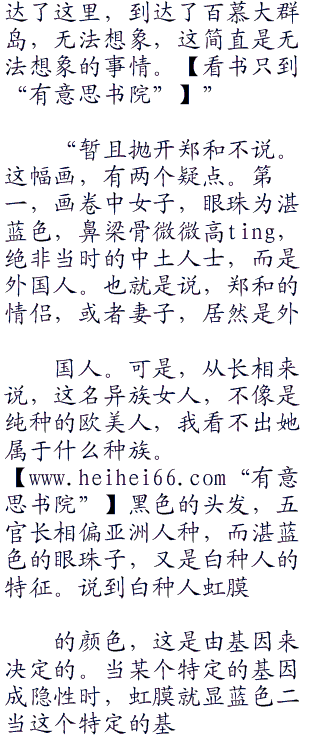 达了这里，到达了百慕大群
岛，无法想象，这简直是无
法想象的事情。【看书只到
“有意思书院”】”
“暂且抛开郑和不说。
这幅画，有两个疑点。第
一，画卷中女子，眼珠为湛
蓝色，鼻梁骨微微高ting，
绝非当时的中土人士，而是
外国人。也就是说，郑和的
情侣，或者妻子，居然是外
国人。可是，从长相来
说，这名异族女人，不像是
纯种的欧美人，我看不出她
属于什么种族。
【www.heihei66.com“有意
思书院”】黑色的头发，五
官长相偏亚洲人种，而湛蓝
色的眼珠子，又是白种人的
特征。说到白种人虹膜
的颜色，这是由基因来
决定的。当某个特定的基因
成隐性时，虹膜就显蓝色二
当这个特定的基